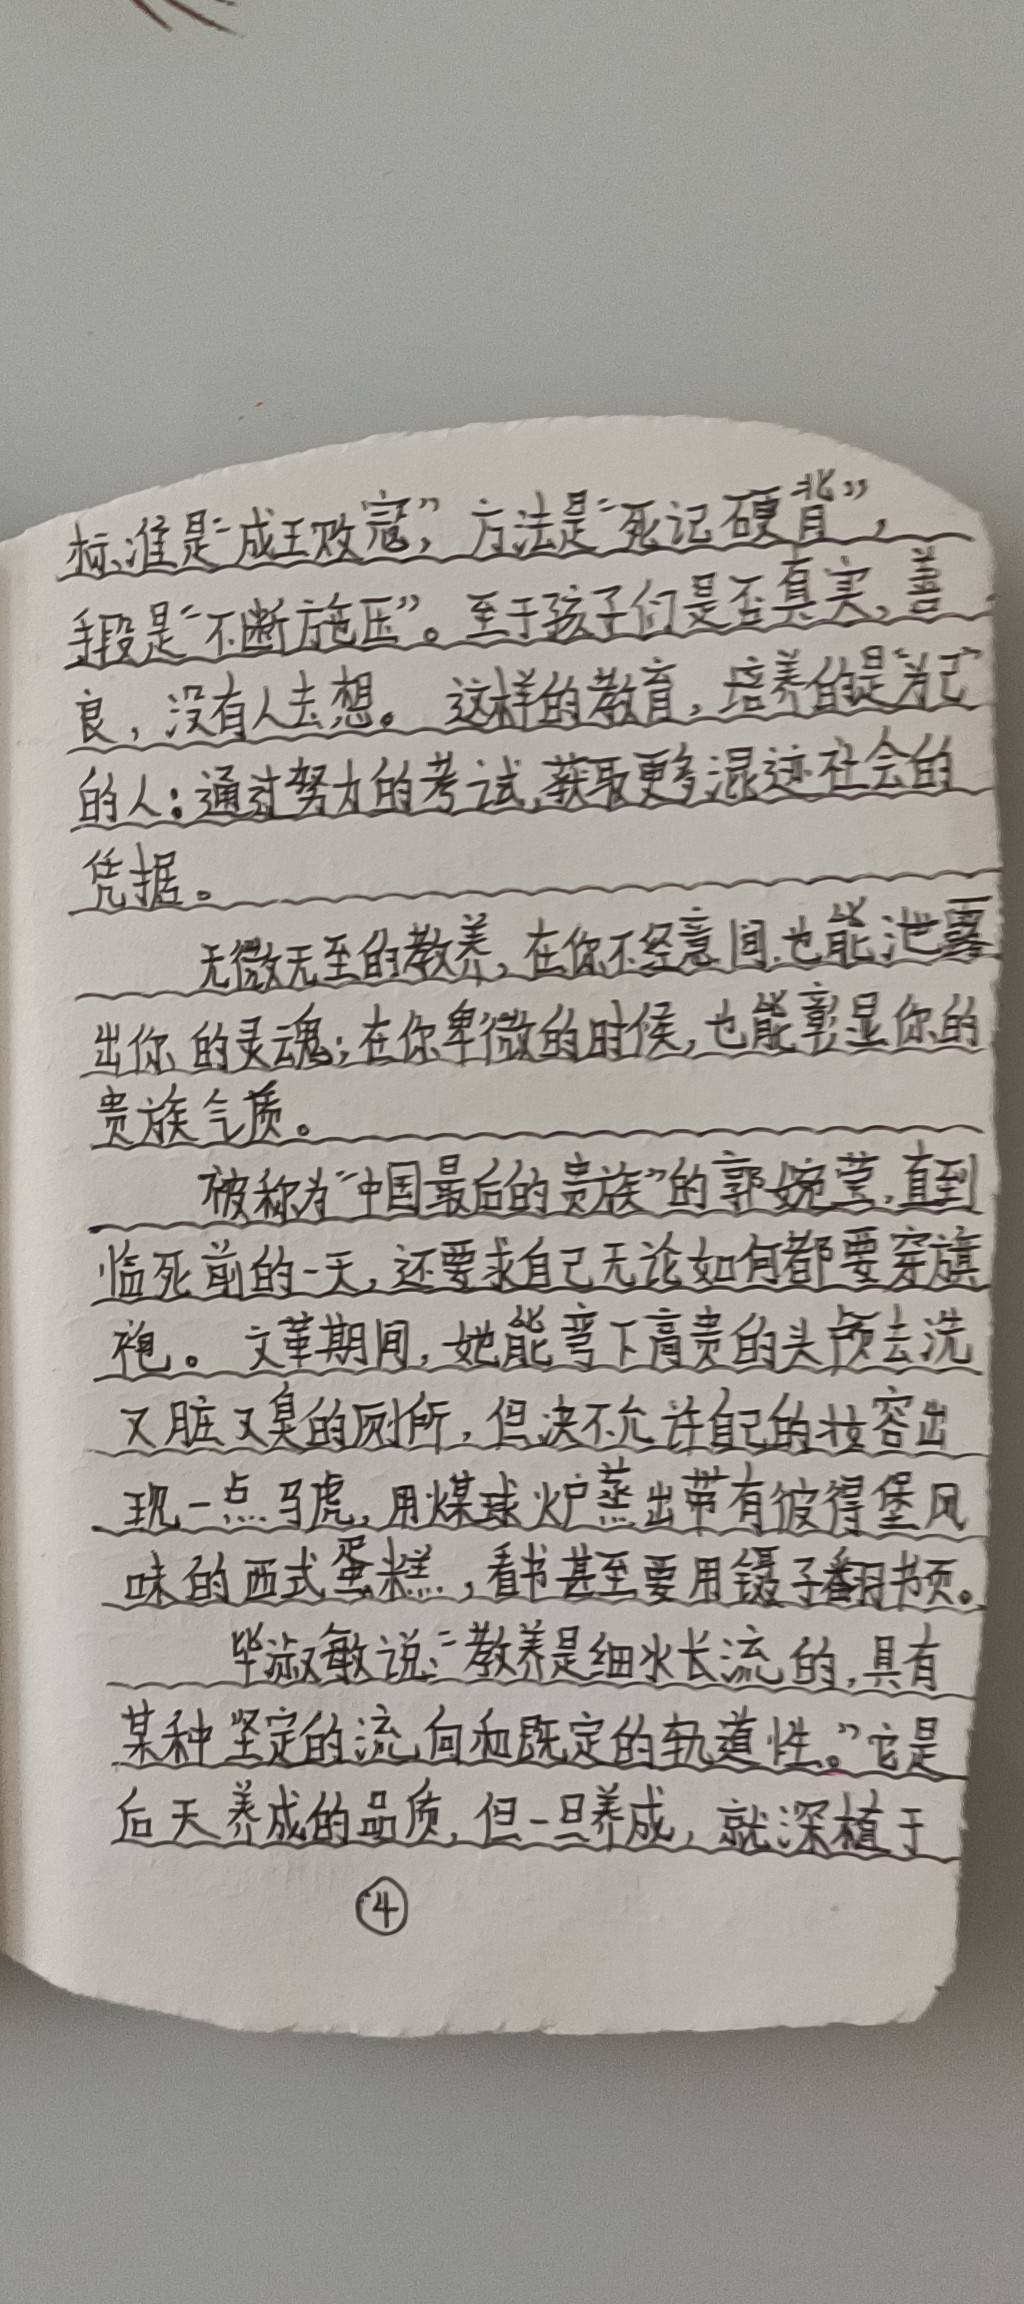 标准是“成王败寇”，方法是“死记硬背”，
手段是“不断施压”。至于孩子们是否真实，善
良，没有人去想。这样的教育，培养的是“为己”
的人：通过努力的考试，获取更多混迹社会的
凭据。
无微无至的教养，在你不经意间，也能泄露
出你的灵魂；在你卑微的时候，也能彰显你的
贵族气质。
被称为“中国最后的贵族”的郭婉莹，直到
临死前的一天，还要求自己无论如何都要穿旗
袍。文革期间，她能弯下高贵的头颅去洗
又脏又臭的厕所，但决不允许自己的妆容出
现一点马虎，用煤球炉蒸出带有彼得堡风
味的西式蛋糕，看书甚至要用镊子翻书页。
毕淑敏说：“教养是细水长流的，具有
某种坚定的流向和既定的轨道性。”它是
后天养成的品质，但一旦养成，就深植于
④